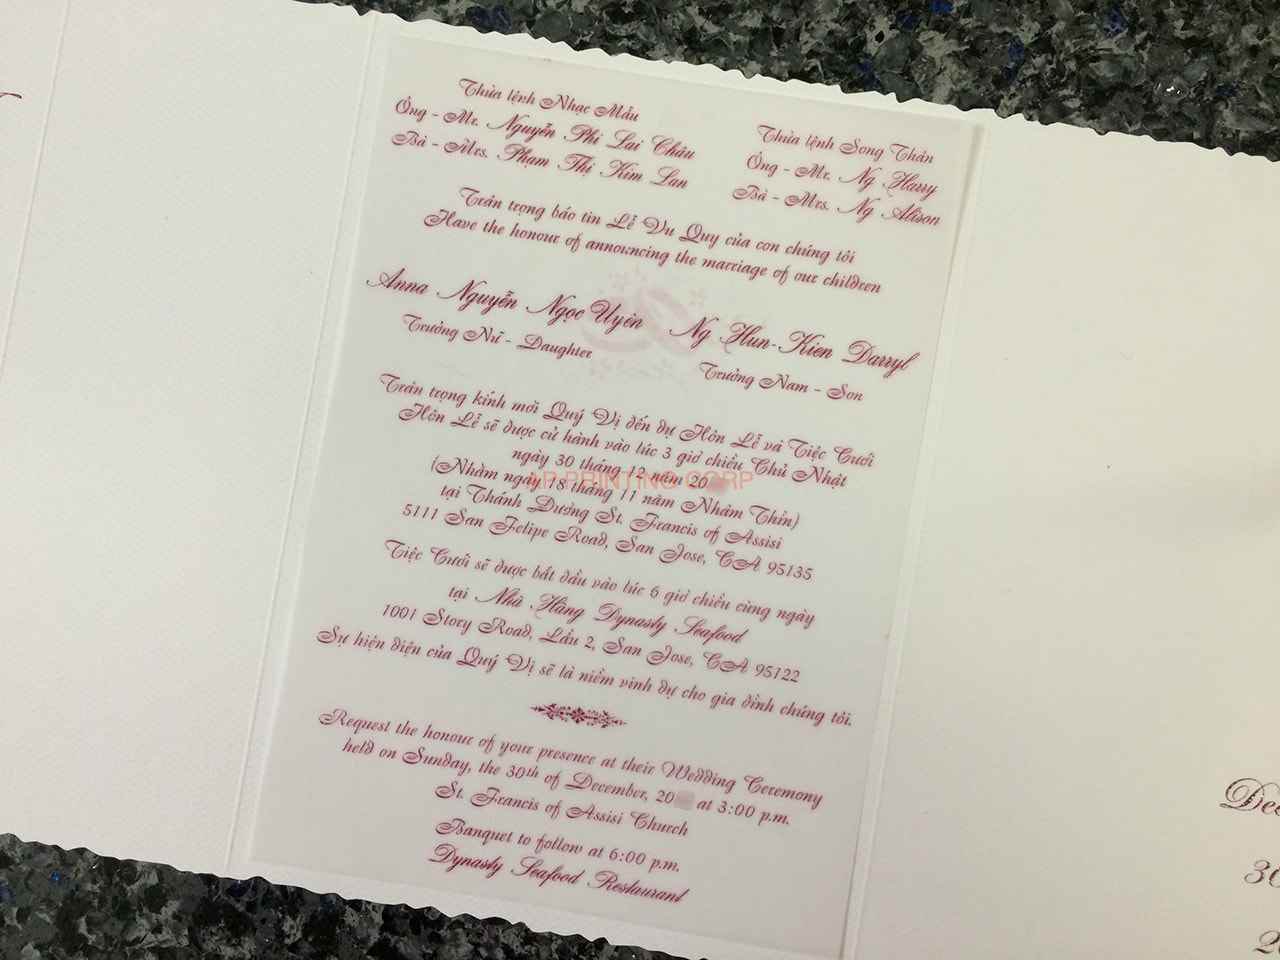 Thừa lệnh Nhạc Mẫu
Ông - Mr. Nguyễn Phi Lai Châu
Bà - Mrs. Phạm Thị Kim Lan
Thừa lệnh Song Thân
Ông - Mr. Ng Harry
Bà - Mrs. Ng Alison
Trân trọng báo tin Lễ Vu Quy của con chúng tôi
Have the honour of announcing the marriage of our children
Anna Nguyễn Ngọc Uyên
Trưởng Nữ - Daughter
Ng Hun-Kien Darryl
Trưởng Nam - Son
Trân trọng kính mời Quý Vị đến dự Hôn Lễ và Tiệc Cưới
Hôn Lễ sẽ được cử hành vào lúc 3 giờ chiều Chủ Nhật
ngày 30 tháng 12 năm 20
AP PRINTING CORP
(Nhằm ngày 18 tháng 11 năm Nhâm Thìn)
tại Thánh Đường St. Francis of Assisi
5111 San Felipe Road, San Jose, CA 95135
Tiệc Cưới sẽ được bắt đầu vào lúc 6 giờ chiều cùng ngày
tại Nhà Hàng Dynasty Seafood
1001 Story Road, Lầu 2, San Jose, CA 95122
Sự hiện diện của Quý Vị sẽ là niềm vinh dự cho gia đình chúng tôi.
Request the honour of your presence at their Wedding Ceremony
held on Sunday, the 30th of December, 20 at 3:00 p.m.
St. Francis of Assisi Church
Banquet to follow at 6:00 p.m.
Dynasty Seafood Restaurant
30